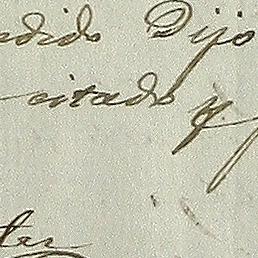 edido Dijo
citado y
ter